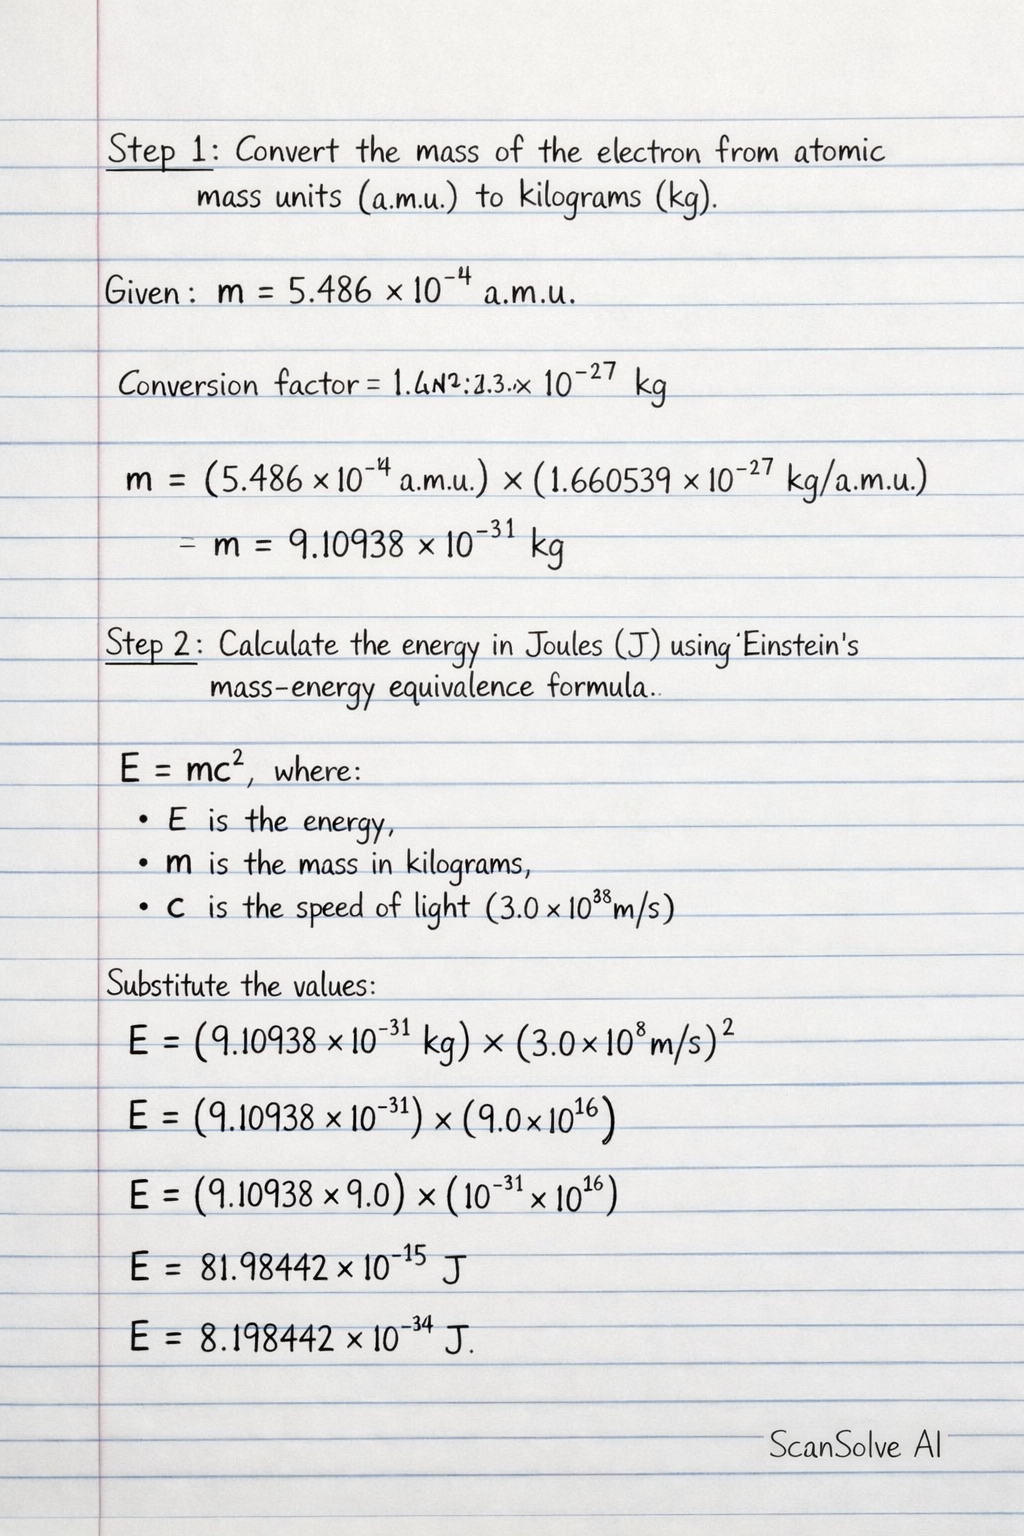 Step 1: Convert the mass of the electron from atomic
mass units (a.m.u.) to kilograms (kg).
Given: m = 5.486 × 10⁻⁴ a.m.u.
Conversion factor = × 10⁻²⁷ kg
m = (5.486 × 10⁻⁴ a.m.u.) × (1.660539 × 10⁻²⁷ kg/a.m.u.)
= m = 9.10938 × 10⁻³¹ kg
Step 2: Calculate the energy in Joules (J) using Einstein's
mass-energy equivalence formula..
E = mc², where:
• E is the energy,
• m is the mass in kilograms,
• c is the speed of light (3.0 × 10³⁸m/s)
Substitute the values:
E = (9.10938 × 10⁻³¹ kg) × (3.0 × 10⁸m/s)²
E = (9.10938 × 10⁻³¹) × (9.0 × 10¹⁶)
E = (9.10938 × 9.0) × (10⁻³¹ × 10¹⁶)
E = 81.98442 × 10⁻¹⁵ J
E = 8.198442 × 10⁻³⁴ J.
ScanSolve AI